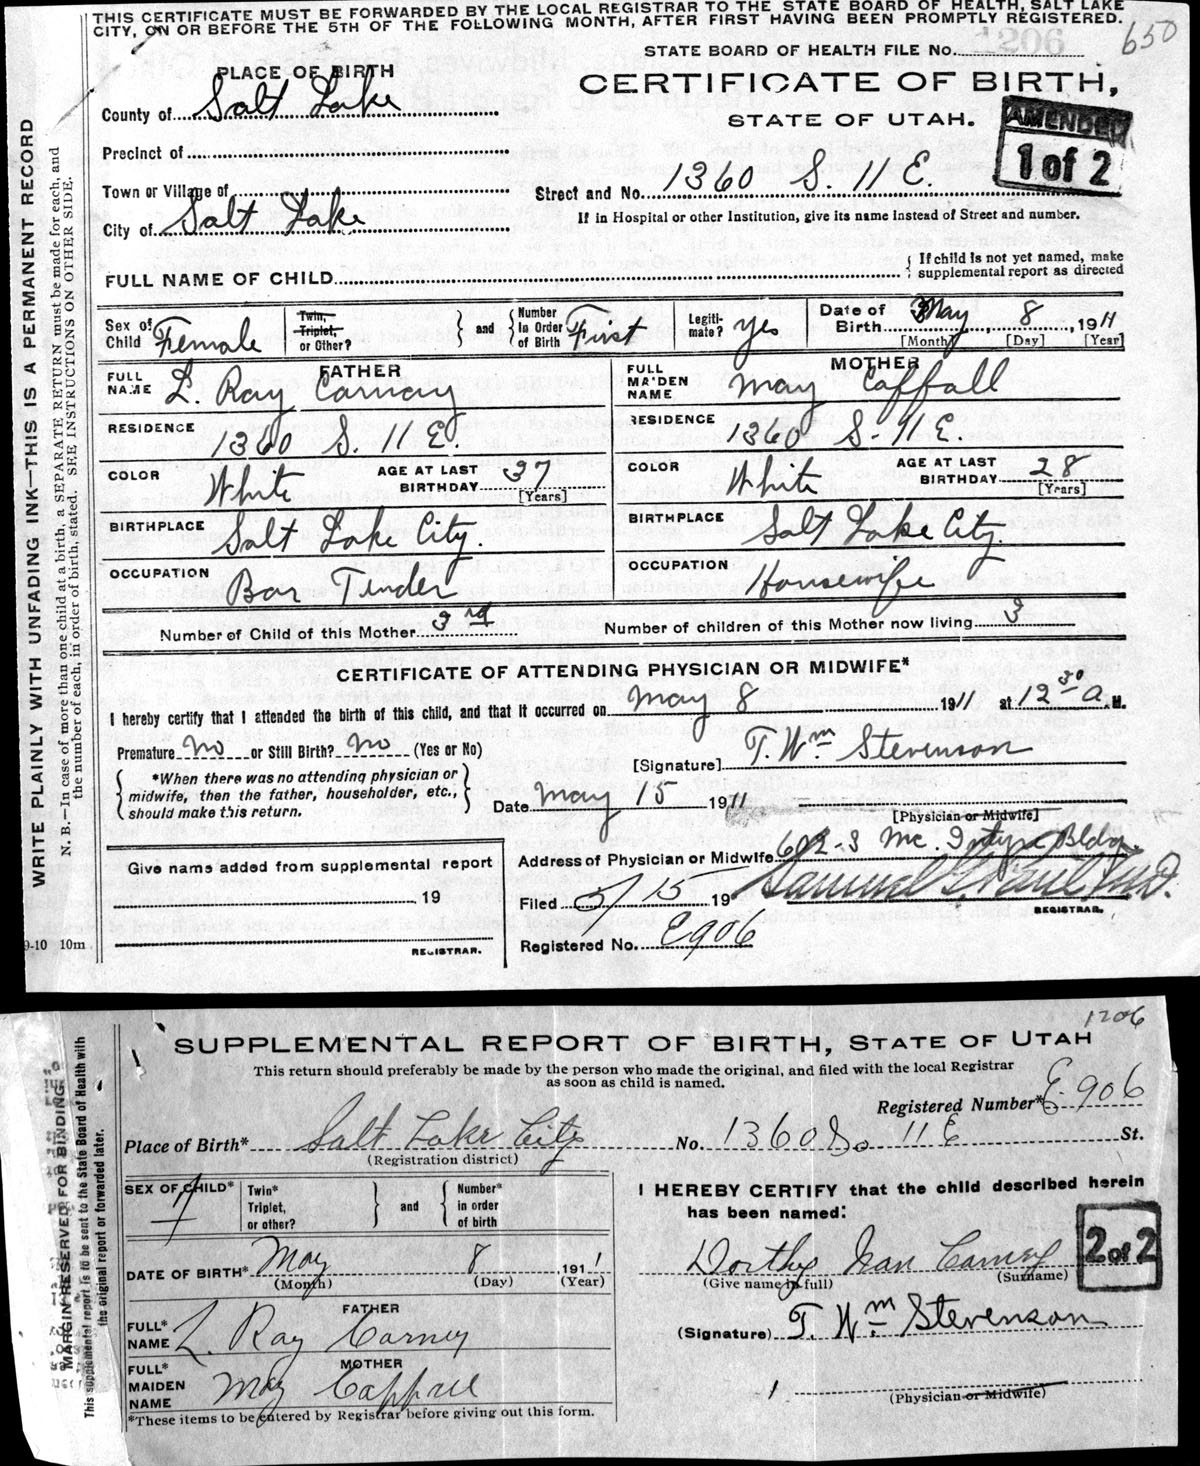 THIS CERTIFICATE MUST BE FORWARDED BY THE LOCAL REGISTRAR TO THE STATE BOARD OF HEALTH, SALT LAKE
CITY, ON OR BEFORE THE 5TH OF THE FOLLOWING MONTH, AFTER FIRST HAVING BEEN PROMPTLY REGISTERED.
650
STATE BOARD OF HEALTH FILE No. 1206
PLACE OF BIRTH
CERTIFICATE OF BIRTH,
STATE OF UTAH.
AMENDED
1 of 2
County of Salt Lake
Precinct of
Town or Village of
Street and No. 1360 S. 11 E.
City of Salt Lake
If in Hospital or other Institution, give its name instead of Street and number.
FULL NAME OF CHILD
{ If child is not yet named, make
supplemental report as directed
Sex of Child Female
Twin, Triplet, or Other? } and { Number in Order of Birth First
Legitimate? yes
Date of Birth May 8, 1911
[Month] [Day] [Year]
FATHER
MOTHER
FULL NAME L. Ray Carnay
FULL MAIDEN NAME May Caffall
RESIDENCE 1360 S. 11 E.
RESIDENCE 1360 S- 11 E.
COLOR White AGE AT LAST BIRTHDAY 37 [Years]
COLOR White AGE AT LAST BIRTHDAY 28 [Years]
BIRTHPLACE Salt Lake City.
BIRTHPLACE Salt Lake City.
OCCUPATION Bar Tinder
OCCUPATION Housewife
Number of Child of this Mother 3rd
Number of children of this Mother now living 3
CERTIFICATE OF ATTENDING PHYSICIAN OR MIDWIFE*
I hereby certify that I attended the birth of this child, and that it occurred on May 8 1911 at 12 30 a. M.
Premature No or Still Birth? No (Yes or No)
[Signature] T. Wm Stevenson
{ *When there was no attending physician or
midwife, then the father, householder, etc.,
should make this return. }
Date May 15 1911
[Physician or Midwife]
Give name added from supplemental report
19
REGISTRAR.
Address of Physician or Midwife 602-3 Mc. Intyre Bldg.
Filed 5/15 19
Samuel G. Paul M.D.
REGISTRAR.
Registered No. E906
9-10 10m
WRITE PLAINLY WITH UNFADING INK—THIS IS A PERMANENT RECORD
N. B.—In case of more than one child at a birth, a SEPARATE RETURN must be made for each, and
the number of each, in order of birth, stated. SEE INSTRUCTIONS ON OTHER SIDE.
1206
SUPPLEMENTAL REPORT OF BIRTH, STATE OF UTAH
This return should preferably be made by the person who made the original, and filed with the local Registrar
as soon as child is named.
Registered Number* E. 906
Place of Birth* Salt Lake City No. 1360 So 11 E St.
(Registration district)
SEX OF CHILD* f
Twin* Triplet, or other? } and { Number* in order of birth
I HEREBY CERTIFY that the child described herein
has been named:
2 of 2
DATE OF BIRTH* May 8 1911
(Month) (Day) (Year)
Dorthy Jean Carney
(Give name in full) (Surname)
FATHER
FULL* NAME L. Ray Carney
(Signature) T. Wm Stevenson
MOTHER
FULL* MAIDEN NAME May Cappall
(Physician or Midwife)
*These items to be entered by Registrar before giving out this form.
MARGIN RESERVED FOR BINDING
This supplemental report is to be sent to the State Board of Health with
the original report or forwarded later.